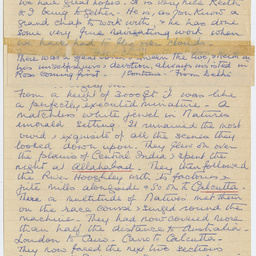 we have great hopes. It is very nice Keith
& I being together. He is, as you know a
grand chap to work with, & he has done
some very fine navigating work when
we have had to fly over clouds.
There was a great contest between the two, each in
his unselfishness & devotion, always insisted on
Ross coming first. Continue - From Delhi
From a height of 3000 ft it was like
a perfectly executed miniature - A
matchless white jewel in Nature's
emerald setting. It remained the most
vivid & exquisite of all the scenes they
looked down upon. They flew on over
the plains of Central India & spent the
night at Allahabad. They then followed
the River Hooghly with its factories &
jute mills alongside & so on to Calcutta.
Here a multitude of Natives met them
on the race course & surged round the
machine. They had now covered more
than half the distance to Australia -
London to Cairo - Cairo to Calcutta -
They now faced the next two sections